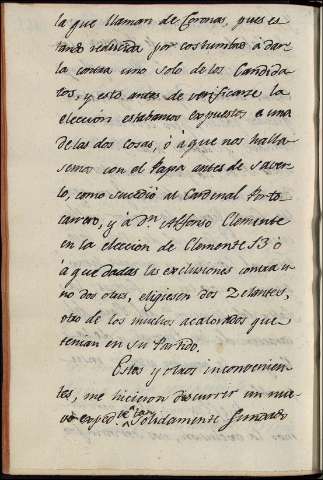 la que llaman de Coronas, pues es
tando reducida por costumbre à dar
la contra uno solo de los Candida
tos, y esto antes de verificarse la
eleccion estabamos expuestos à una
de las dos cosas, ó à que nos halla
semos con el Papa antes de saver
lo, como sucedió al Cardenal Porto
carrero, y à Dn. Alfonso Clemente
en la eleccion de Clemente 13 ó
à que dadas las exclusiones contra u
no dos otros, eligiesen dos Zelantes,
otro de los muchos acalorados que
tenian en su Partido.
Estos y otros inconvenien
tes, me hicieron discurrir un nue
vo exped.te tan solidamente fundado